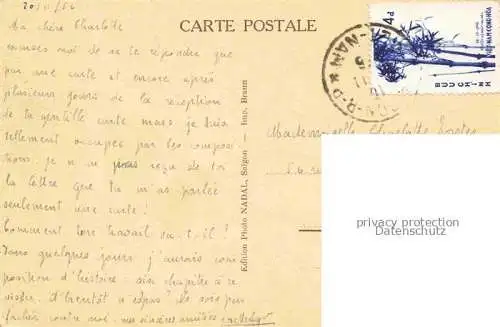 20/11/62
Ma chère Charlotte
excuses moi de ne te répondre que
par une carte et encore après
plusieur jours de la reception
de ta gentille carte mais je suis
tellement occupée par les composi
tions. je n'ai pas reçu de toi
la lettre que tu m'as parlée
seulement une carte!
Comment ton travail va-t-il?
Dans quelques jours j'aurais com
position d'histoire: six chapitre à re
viser. A bientôt
fachée contre moi. mes sincères amitiés
CARTE POSTALE
Edition Photo NADAL, Saigon - Imp. Braun
4đ
VIỆT-NAM CỘNG-HÒA
BƯU-CHÍNH
Mademoiselle Charlotte
privacy protection
Datenschutz